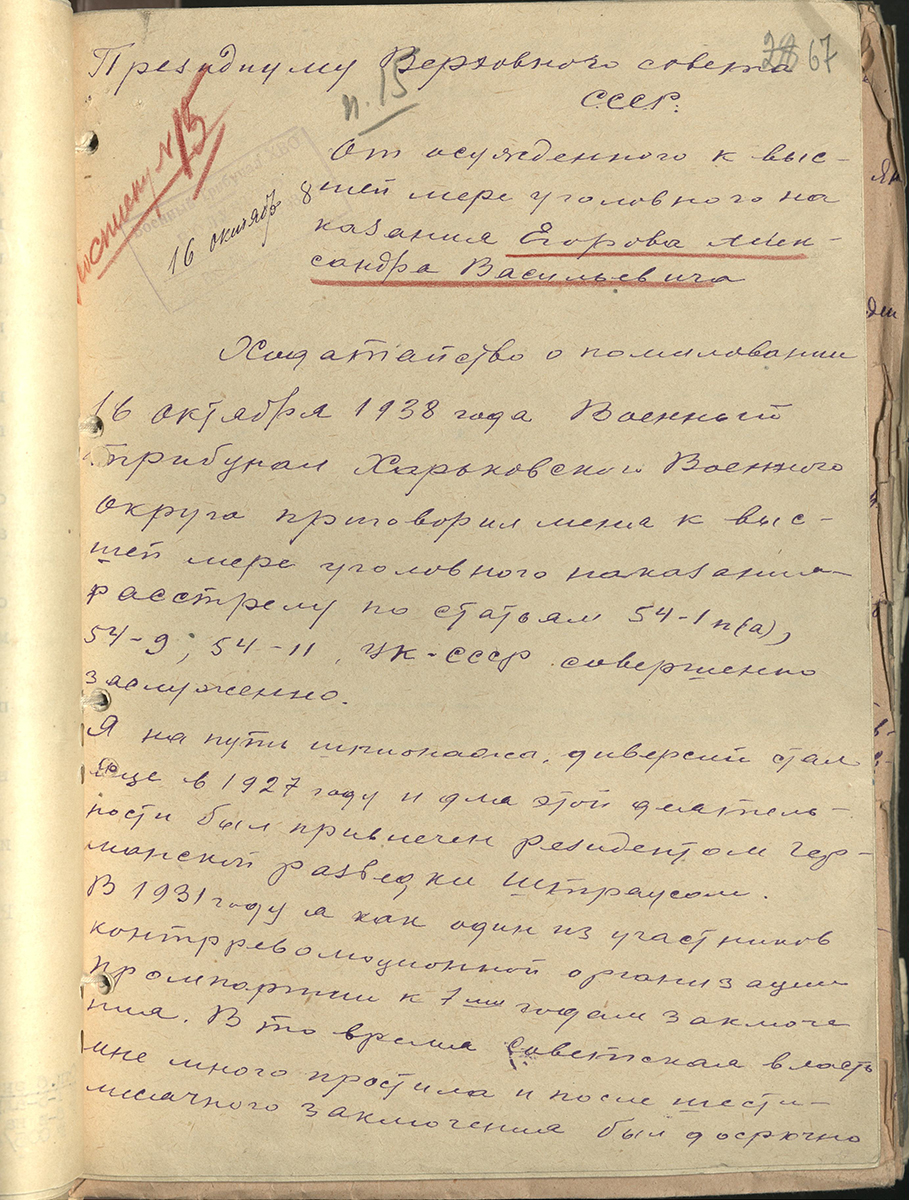 28 67
Президиуму Верховного совета
СССР.
п. 15
N 15
16 октябрь 8
От осужденного к выс-
шей мере уголовного на
казания Егорова Алек-
сандра Васильевича
Ходатайство о помиловании
16 октября 1938 года Военный
трибунал Харьковского Военного
округа приговорил меня к выс-
шей мере уголовного наказания-
расстрелу по статьям 54-1п(а),
54-9, 54-11, УК-СССР совершенно
заслуженно.
Я на путь шпионажа, диверсий стал
еще в 1927 году и для этой деятель-
ности был привлечен резидентом гер-
манской разведки Штраусом.
В 1931 году я как один из участников
контрреволюционной организации
промпартии к 7ми годам заключе
ния. В то время Советская власть
мне много простила и после шести-
месячного заключения был досрочно